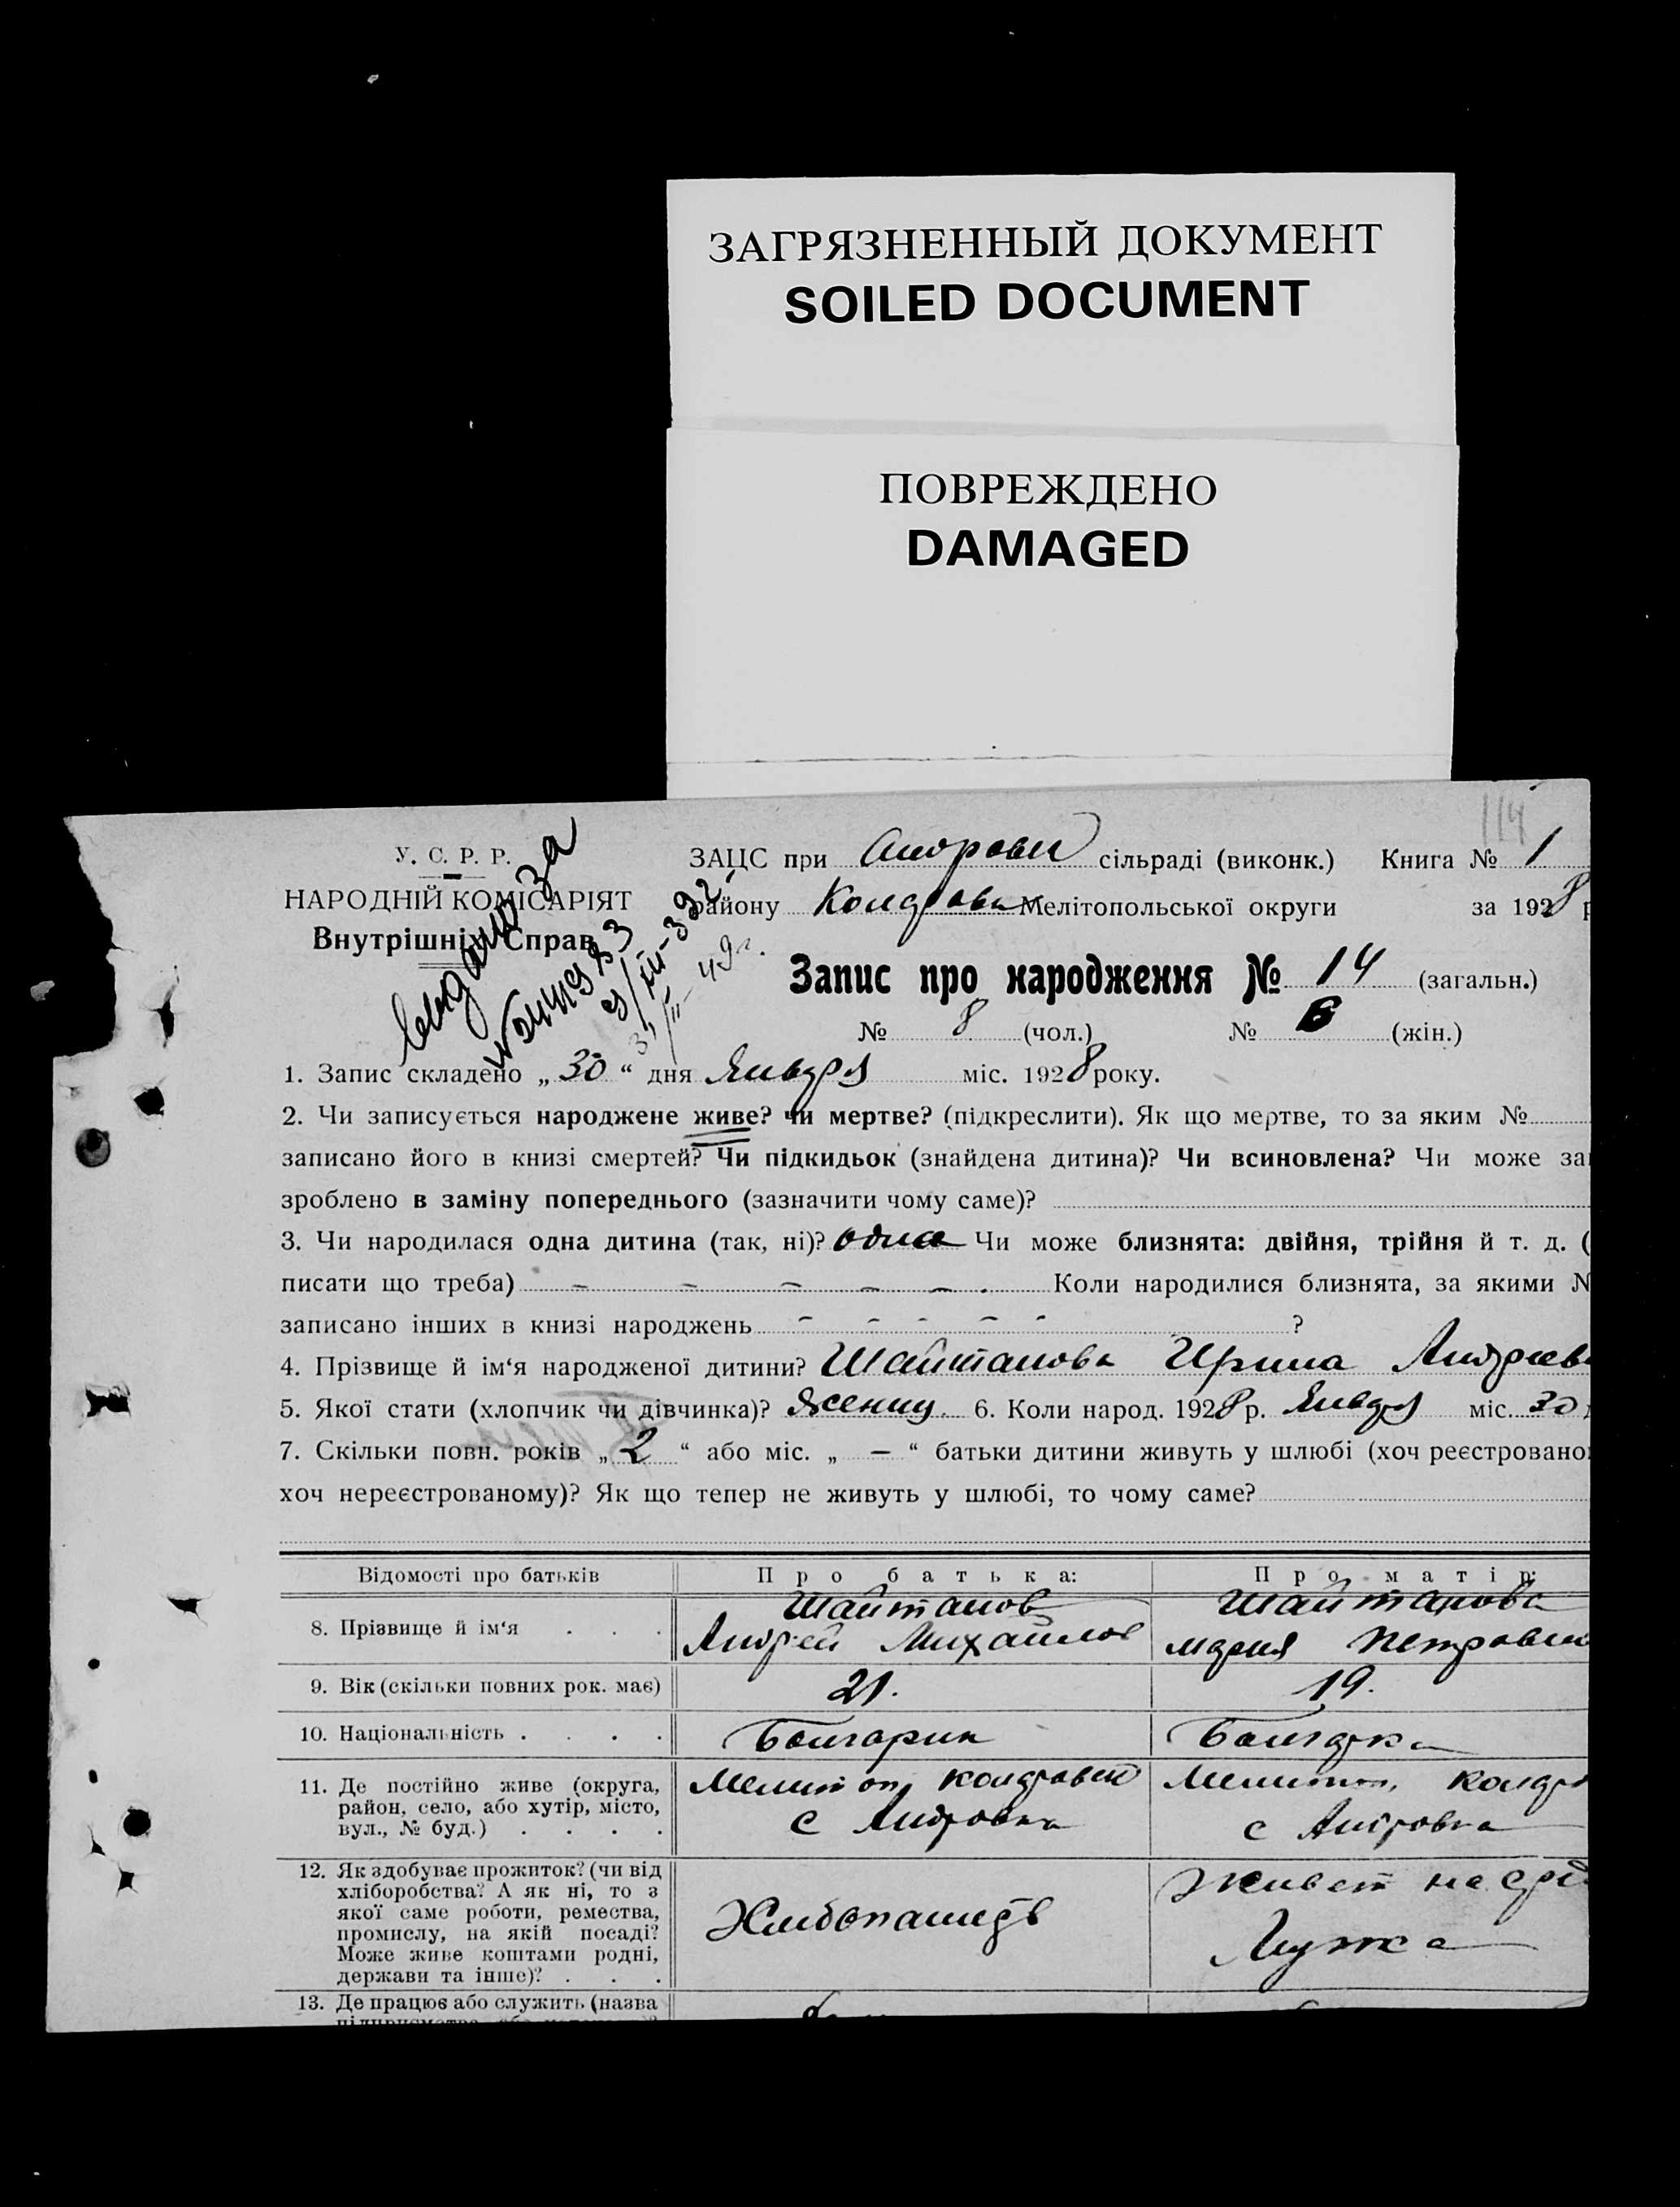 ЗАГРЯЗНЕННЫЙ ДОКУМЕНТ
SOILED DOCUMENT
ПОВРЕЖДЕНО
DAMAGED
114
У. С. Р. Р.
НАРОДНІЙ КОМІСАРІЯТ
Внутрішніх Справ
ЗАЦС при Андрови сільраді (виконк.) Книга № 1
району Колдрови Мелітопольської округи за 1928 р
Запис про народження № 14 (загальн.)
№ 8 (чол.) № 6 (жін.)
1. Запис складено „ 30 “ дня Января міс. 1928 року.
2. Чи записується народжене живе? чи мертве? (підкреслити). Як що мертве, то за яким №
записано його в книзі смертей? Чи підкидьок (знайдена дитина)? Чи всиновлена? Чи може за
зроблено в заміну попереднього (зазначити чому саме)?
3. Чи народилася одна дитина (так, ні)? одна Чи може близнята: двійня, трійня й т. д. (
писати що треба) – – – – – Коли народилися близнята, за якими №
записано інших в книзі народжень – – – – – ?
4. Прізвище й ім‘я народженої дитини? Шайтанова Ирина Андреев
5. Якої стати (хлопчик чи дівчинка)? женщ. 6. Коли народ. 1928 р. Января міс. 30
7. Скільки повн. років „ 2 “ або міс. „ — “ батьки дитини живуть у шлюбі (хоч реєстровано
хоч нереєстрованому)? Як що тепер не живуть у шлюбі, то чому саме?
Відомості про батьків Про батька: Про матір:
8. Прізвище й ім‘я . . . Шайтанов Андрей Михайлов Шайтанова Мария Петровн
9. Вік (скільки повних рок. має) 21. 19.
10. Національність . . . . Болгарин Болгарка
11. Де постійно живе (округа, Мелитоп, Колдровск Мелитоп, Колдр
район, село, або хутір, місто, с Андровка с Андровка
вул., № буд.) . . . .
12. Як здобуває прожиток? (чи від
хліборобства? А як ні, то з Живет на сред
якої саме роботи, ремества, Хлебопашець
промислу, на якій посаді? Мужа
Може живе коштами родні,
держави та інше)? . . .
13. Де працює або служить (назва